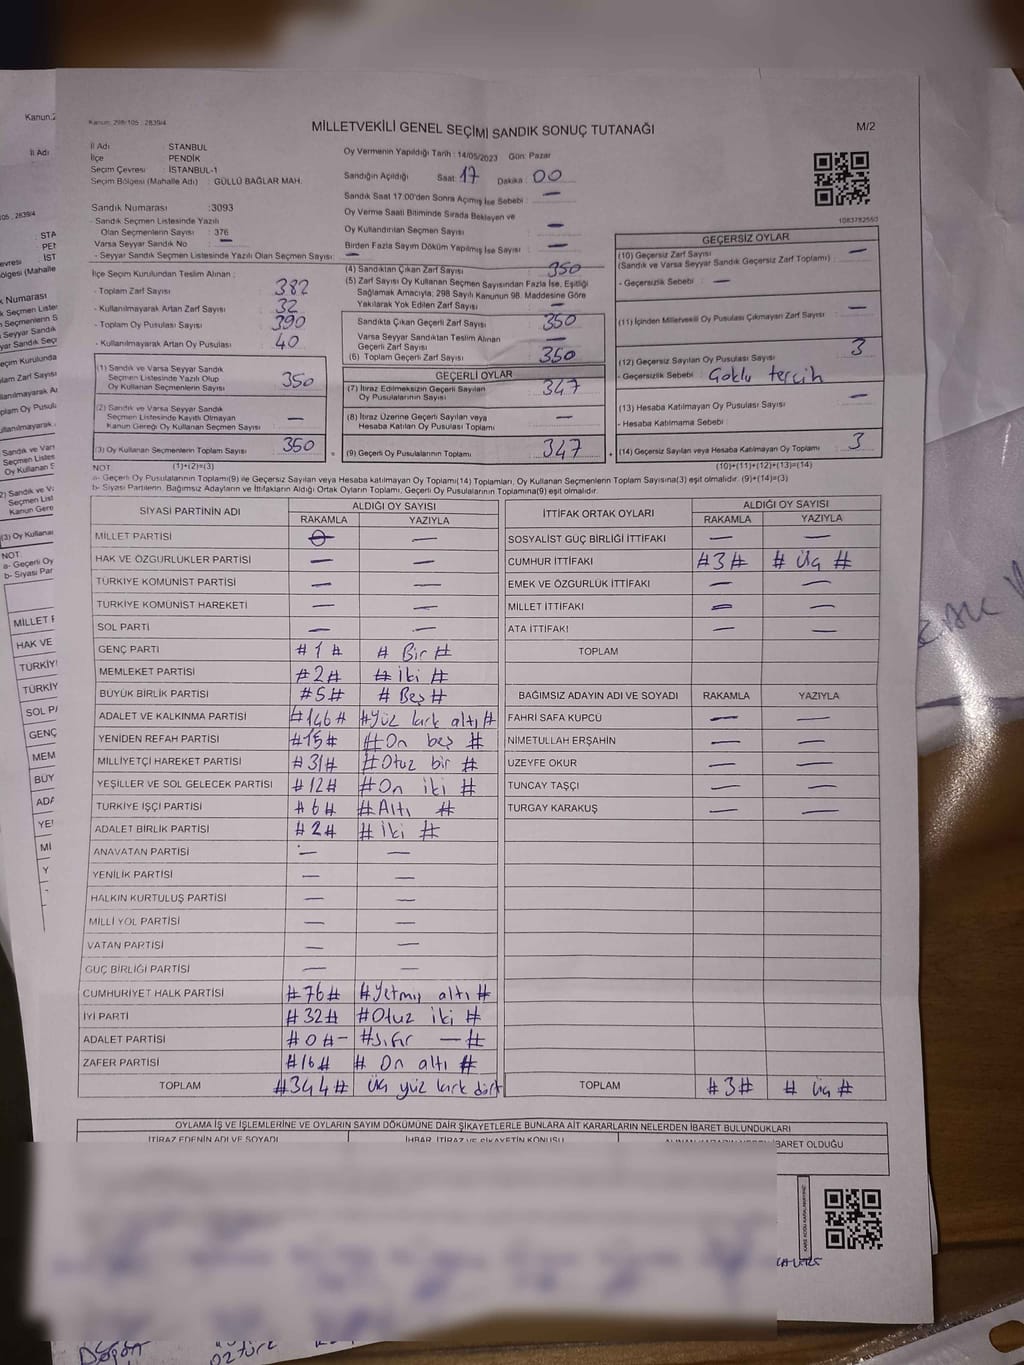 Kanun: 298/105 ; 2839/4
MİLLETVEKİLİ GENEL SEÇİMİ SANDIK SONUÇ TUTANAĞI
M/2
İl Adı : İSTANBUL
İlçe : PENDİK
Seçim Çevresi : İSTANBUL-1
Seçim Bölgesi (Mahalle Adı) : GÜLLÜ BAĞLAR MAH.
Oy Vermenin Yapıldığı Tarih : 14/05/2023 Gün: Pazar
Sandığın Açıldığı Saat: 17 Dakika: 00
Sandık Saat 17:00'den Sonra Açılmış İse Sebebi : —
Oy Verme Saati Bitiminde Sırada Bekleyen ve
Oy Kullandırılan Seçmen Sayısı : —
Birden Fazla Sayım Döküm Yapılmış İse Sayısı : —
1083782550
Sandık Numarası :3093
- Sandık Seçmen Listesinde Yazılı
Olan Seçmenlerin Sayısı : 376
Varsa Seyyar Sandık No : —
- Seyyar Sandık Seçmen Listesinde Yazılı Olan Seçmen Sayısı: —
İlçe Seçim Kurulundan Teslim Alınan :
- Toplam Zarf Sayısı : 382
- Kullanılmayarak Artan Zarf Sayısı : 32
- Toplam Oy Pusulası Sayısı : 390
- Kullanılmayarak Artan Oy Pusulası : 40
(1) Sandık ve Varsa Seyyar Sandık
Seçmen Listesinde Yazılı Olup
Oy Kullanan Seçmenlerin Sayısı : 350
(2) Sandık ve Varsa Seyyar Sandık
Seçmen Listesinde Kayıtlı Olmayan
Kanun Gereği Oy Kullanan Seçmen Sayısı : —
(3) Oy Kullanan Seçmenlerin Toplam Sayısı : 350
(1)+(2)=(3)
(4) Sandıktan Çıkan Zarf Sayısı : 350
(5) Zarf Sayısı Oy Kullanan Seçmen Sayısından Fazla İse, Eşitliği
Sağlamak Amacıyla; 298 Sayılı Kanunun 98. Maddesine Göre
Yakılarak Yok Edilen Zarf Sayısı : —
Sandıkta Çıkan Geçerli Zarf Sayısı : 350
Varsa Seyyar Sandıktan Teslim Alınan
Geçerli Zarf Sayısı : —
(6) Toplam Geçerli Zarf Sayısı : 350
GEÇERLİ OYLAR
(7) İtiraz Edilmeksizin Geçerli Sayılan
Oy Pusulalarının Sayısı : 347
(8) İtiraz Üzerine Geçerli Sayılan veya
Hesaba Katılan Oy Pusulası Toplamı : —
(9) Geçerli Oy Pusulalarının Toplamı : 347
GEÇERSİZ OYLAR
(10) Geçersiz Zarf Sayısı : —
(Sandık ve Varsa Seyyar Sandık Geçersiz Zarf Toplamı)
- Geçersizlik Sebebi : —
(11) İçinden Milletvekili Oy Pusulası Çıkmayan Zarf Sayısı : —
(12) Geçersiz Sayılan Oy Pusulası Sayısı : 3
- Geçersizlik Sebebi : Çoklu tercih
(13) Hesaba Katılmayan Oy Pusulası Sayısı : —
- Hesaba Katılmama Sebebi :
(14) Geçersiz Sayılan veya Hesaba Katılmayan Oy Toplamı : 3
(10)+(11)+(12)+(13)=(14)
NOT
a- Geçerli Oy Pusulalarının Toplamı(9) ile Geçersiz Sayılan veya Hesaba katılmayan Oy Toplamı(14) Toplamları, Oy Kullanan Seçmenlerin Toplam Sayısına(3) eşit olmalıdır. (9)+(14)=(3)
b- Siyasi Partilerin, Bağımsız Adayların ve İttifakların Aldığı Ortak Oyların Toplamı, Geçerli Oy Pusulalarının Toplamına(9) eşit olmalıdır.
SİYASİ PARTİNİN ADI ALDIĞI OY SAYISI
RAKAMLA YAZIYLA
MİLLET PARTİSİ —
HAK VE ÖZGÜRLÜKLER PARTİSİ — —
TÜRKİYE KOMÜNİST PARTİSİ — —
TÜRKİYE KOMÜNİST HAREKETİ — —
SOL PARTİ — —
GENÇ PARTİ #1# # Bir #
MEMLEKET PARTİSİ #2# # iki #
BÜYÜK BİRLİK PARTİSİ #5# # Beş #
ADALET VE KALKINMA PARTİSİ #146# #Yüz kırk altı #
YENİDEN REFAH PARTİSİ #15# #On beş #
MİLLİYETÇİ HAREKET PARTİSİ #31# #Otuz bir #
YEŞİLLER VE SOL GELECEK PARTİSİ #12# #On iki #
TÜRKİYE İŞÇİ PARTİSİ #6# #Altı #
ADALET BİRLİK PARTİSİ #2# # iki #
ANAVATAN PARTİSİ — —
YENİLİK PARTİSİ — —
HALKIN KURTULUŞ PARTİSİ — —
MİLLİ YOL PARTİSİ — —
VATAN PARTİSİ — —
GÜÇ BİRLİĞİ PARTİSİ — —
CUMHURİYET HALK PARTİSİ #76# #Yetmiş altı #
İYİ PARTİ #32# #Otuz iki #
ADALET PARTİSİ #0#- #Sıfır — #
ZAFER PARTİSİ #16# # On altı #
TOPLAM #344# Üç yüz kırk dört
İTTİFAK ORTAK OYLARI ALDIĞI OY SAYISI
RAKAMLA YAZIYLA
SOSYALİST GÜÇ BİRLİĞİ İTTİFAKI — —
CUMHUR İTTİFAKI #3# # Üç #
EMEK VE ÖZGÜRLÜK İTTİFAKI — —
MİLLET İTTİFAKI — —
ATA İTTİFAKI — —
TOPLAM
BAĞIMSIZ ADAYIN ADI VE SOYADI RAKAMLA YAZIYLA
FAHRİ SAFA KÜPCÜ — —
NİMETULLAH ERŞAHİN — —
UZEYFE OKUR — —
TUNCAY TAŞÇI — —
TURGAY KARAKUŞ — —
TOPLAM #3# # Üç #
OYLAMA İŞ VE İŞLEMLERİNE VE OYLARIN SAYIM DÖKÜMÜNE DAİR ŞİKAYETLERLE BUNLARA AİT KARARLARIN NELERDEN İBARET BULUNDUKLARI
İTİRAZ EDENİN ADI VE SOYADI İHBAR, İTİRAZ VE ŞİKAYETİN KONUSU İBARET OLDUĞU